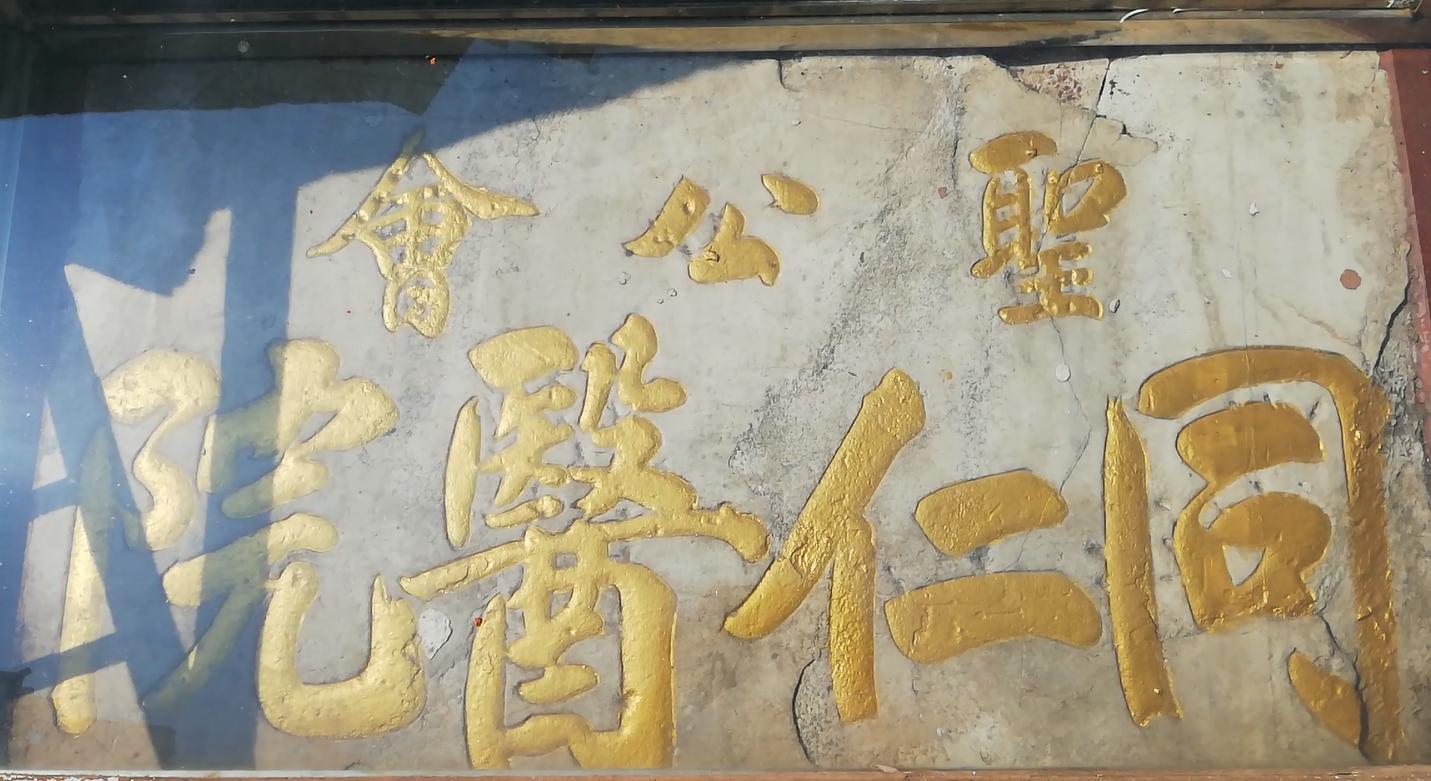 聖公會
同仁醫院